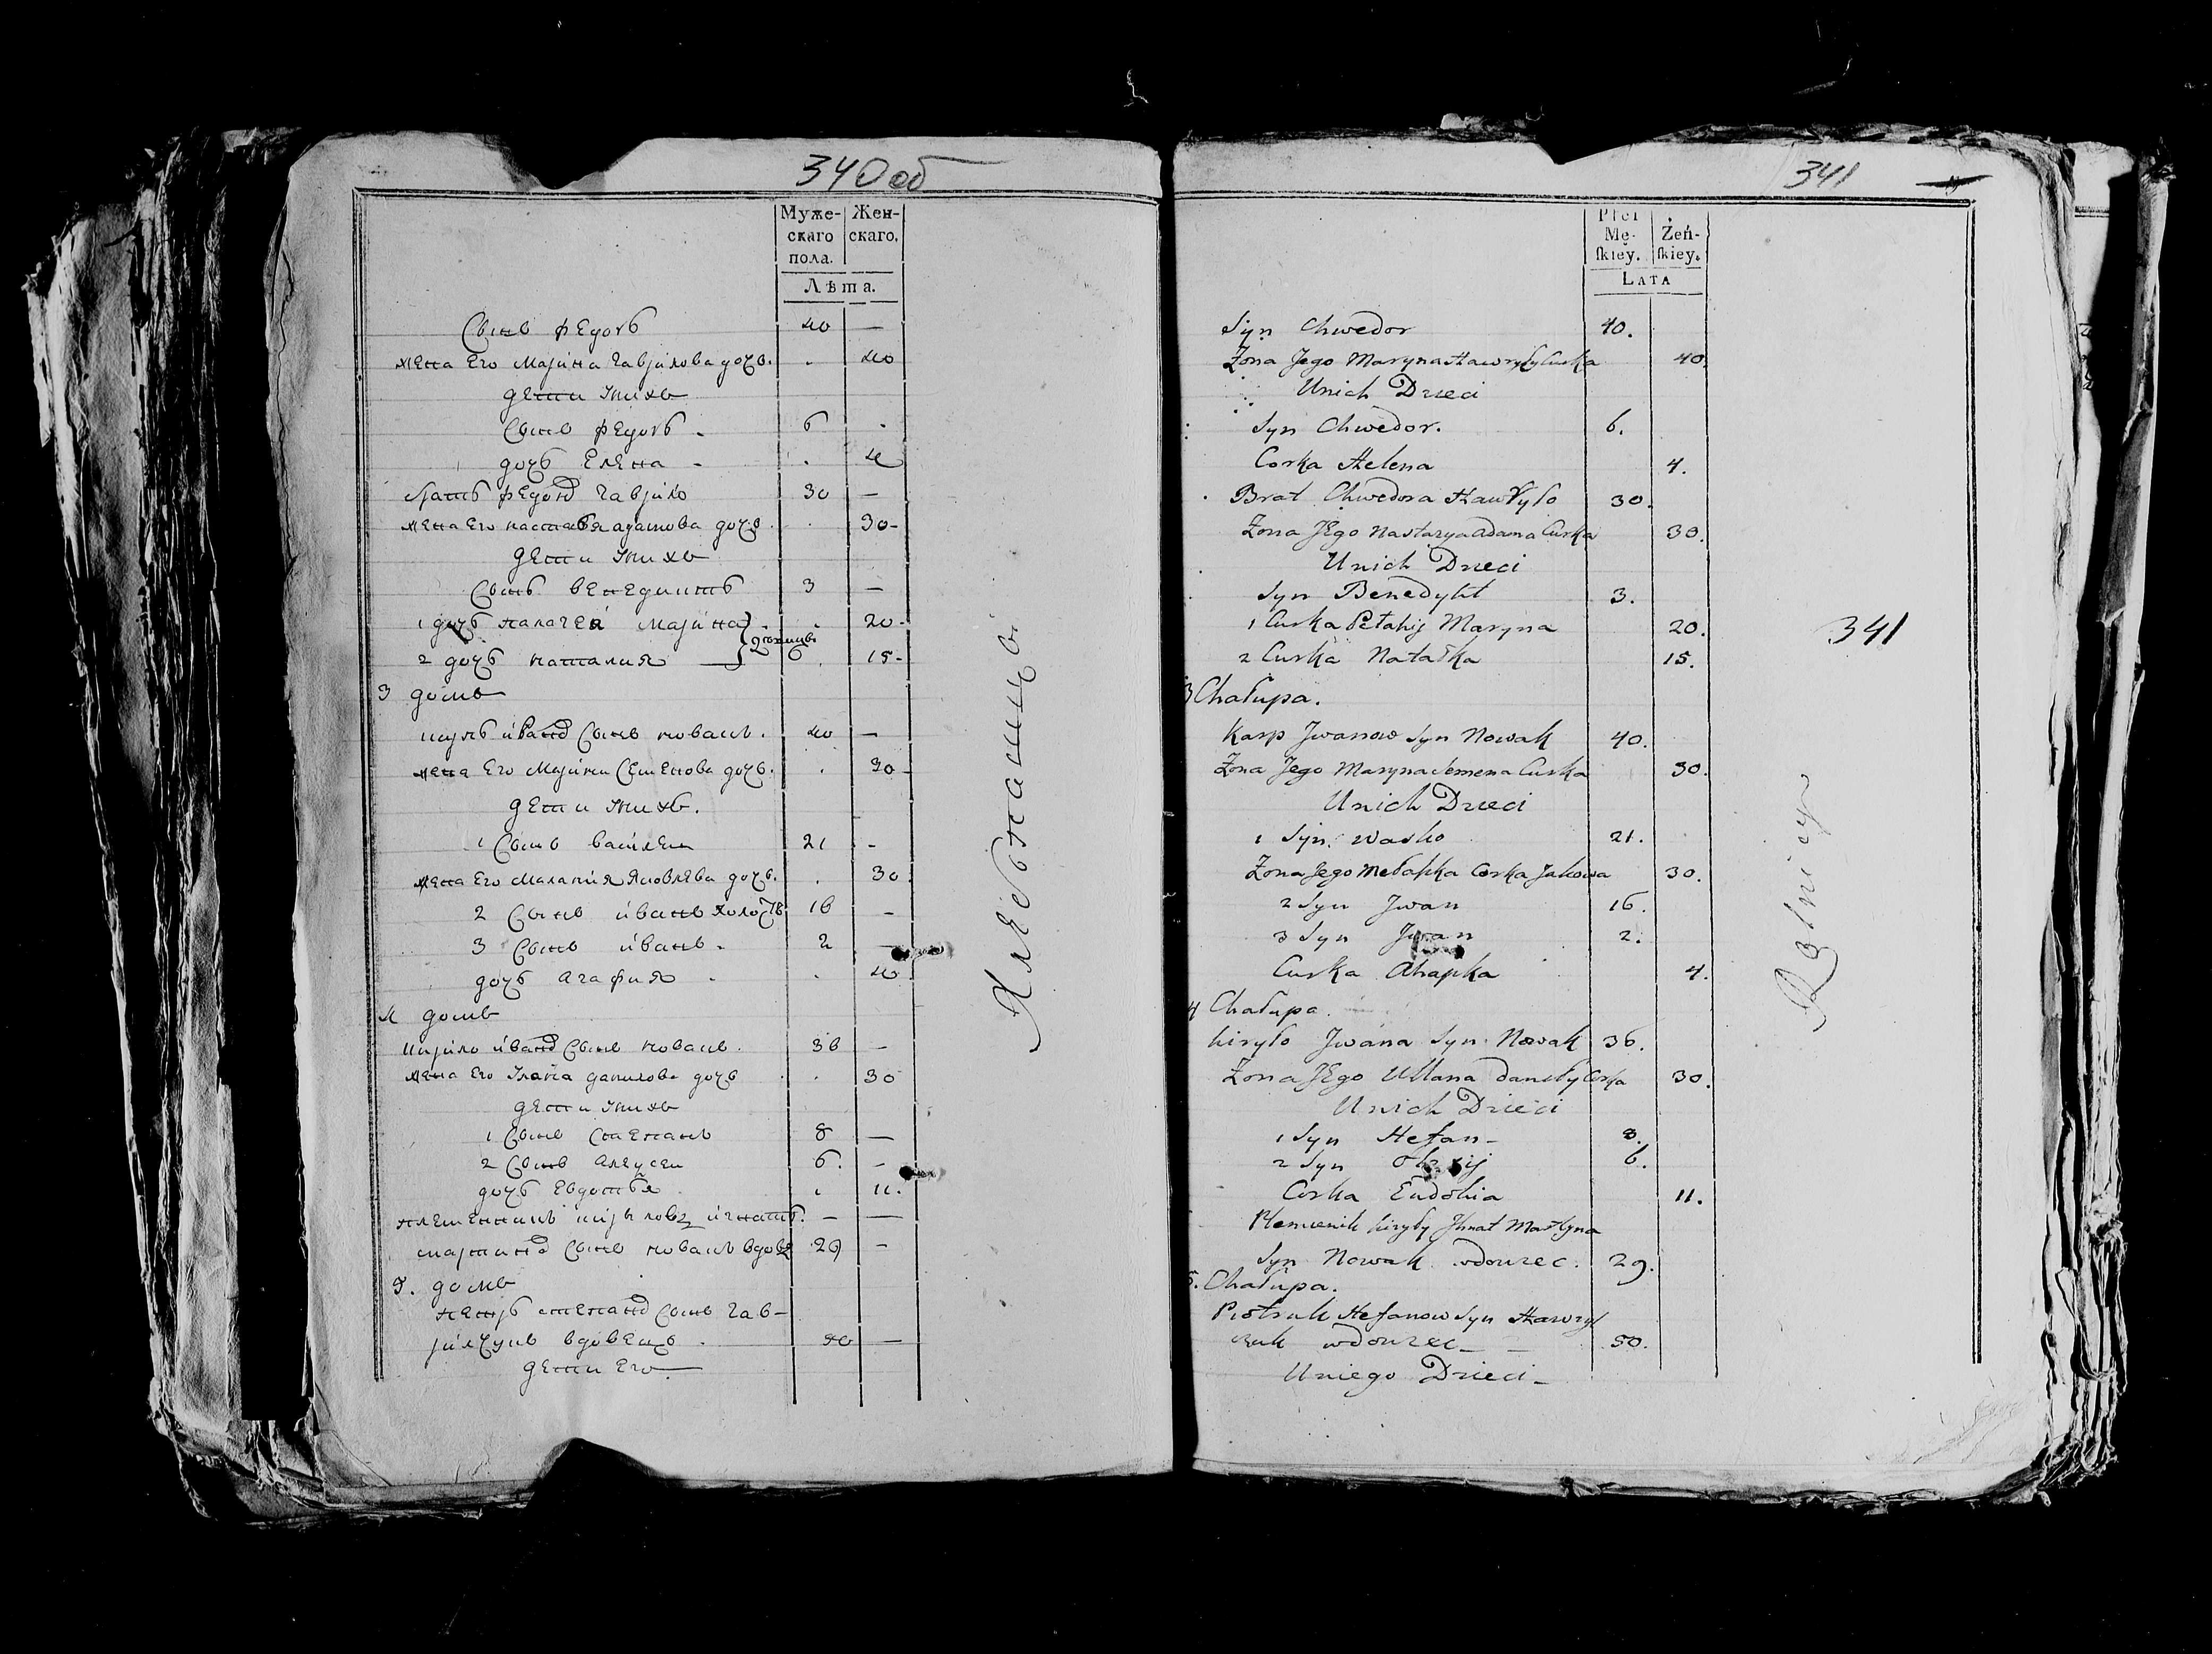 340 об
Муже-
скаго
пола.
Жен-
скаго.
Лѣта.
Сынъ Федоръ 40 —
жена Его Марина Гаврилова дочь. . 40
дети у нихъ
Сынъ Федоръ . 6 .
дочь Елена - . 4
братъ Федора Гаврило 30 —
жена Его настасья адамова дочь . . 30-
дети у нихъ
Сынъ Венедиктъ 3 —
1 дочь Марина . 20-
2 дочь наталия . 15-
3 домъ
карпъ иванов Сынъ новакъ . 40 —
жена Его Марина Семенова дочь. . 30-
дети у нихъ.
1 Сынъ василей 21 -
жена Его Малания Яковлева дочь. . 30.
2 Сынъ иванъ холостъ 16 —
3 Сынъ иванъ . 2 —
дочь агафия . . 4.
4 домъ
кирило иванов Сынъ новакъ . 36 —
жена Его Улана данилова дочь . . 30
дети у нихъ
1 Сынъ степанъ 8 —
2 Сынъ алексеи 6. -
дочь Евдокия . 11.
племенникъ кирилов игнатъ. — —
мартинов Сынъ новакъ вдов 29 -
5. домъ
петръ степанов Сынъ гав-
рилчукъ вдовецъ . 50 —
дети Его
Хлебпашцы
341
Płci
Mę-
skiey.
Żeń-
skiey.
LATA
Syn Chwedor 40.
Zona Jego Maryna Hawryły Curka 40.
Unich Dzieci
Syn Chwedor. 6.
Corka Helena 4.
Brat Chwedora Hawryło 30.
Zona JEgo Nastazya Adama Curka 30.
Unich Dzieci
Syn Benedykt 3.
1 Curka Maryna 20.
2 Curka Natałka 15.
341
3 Chałupa.
Karp Jwanow Syn Nowak 40.
Zona Jego Maryna Semena Curka 30.
Unich Dzieci
1 Syn Wasko 21.
Zona Jego Mełahka Corka Jakowa 30.
2 Syn Jwan 16.
3 Syn Jwan 2.
Curka Ahapka 4.
4 Chałupa.
kiryło Jwana Syn Nowak 36.
Zona JEgo Ullana Daniły Corka 30.
Unich Dzieci
1 Syn Stefan - 8.
2 Syn 6.
Corka Eudokia 11.
Plemienik kiryły Jhnat Martyna
Syn Nowak wdowiec. 29.
5. Chałupa.
Piotruk Stefanow Syn Hawryl
czuk wdowiec - - 50.
Uniego Dzieci -
Rolnicy